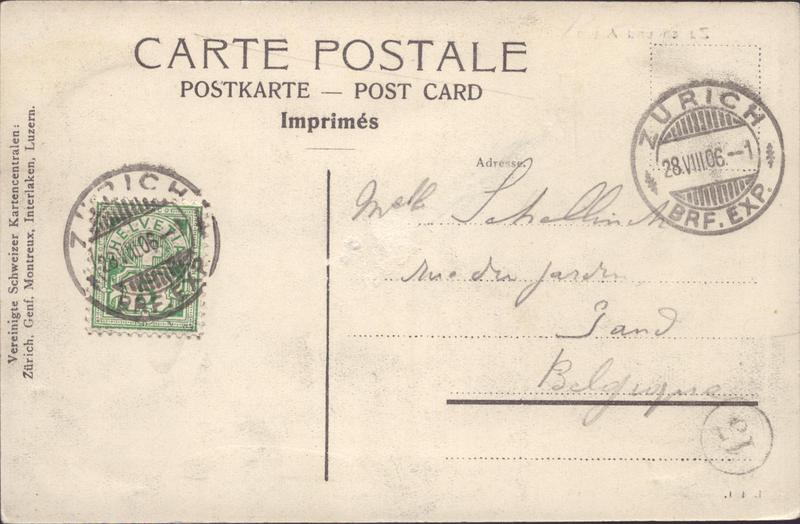 CARTE POSTALE
POSTKARTE — POST CARD
Imprimés
Adresse.
ZÜRICH
28.VIII.06.–1
BRF. EXP.
ZÜRICH
28.VIII.06
BRF. EXP.
HELVETIA
Melle
rue du jardin
Gand
Belgique
Vereinigte Schweizer Kartencentralen:
Zürich, Genf, Montreux, Interlaken, Luzern.